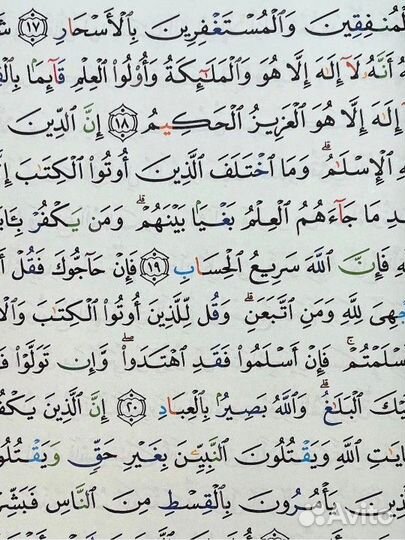 ٱلۡمُنفِقِينَ وَٱلۡمُسۡتَغۡفِرِينَ بِٱلۡأَسۡحَارِ ١٧
أَنَّهُۥ لَآ إِلَٰهَ إِلَّا هُوَ وَٱلۡمَلَٰٓئِكَةُ وَأُوْلُواْ ٱلۡعِلۡمِ قَآئِمَۢا
إِلَٰهَ إِلَّا هُوَ ٱلۡعَزِيزُ ٱلۡحَكِيمُ ١٨ إِنَّ ٱلدِّينَ
ٱلۡإِسۡلَٰمُۗ وَمَا ٱخۡتَلَفَ ٱلَّذِينَ أُوتُواْ ٱلۡكِتَٰبَ
مَا جَآءَهُمُ ٱلۡعِلۡمُ بَغۡيَۢا بَيۡنَهُمۡۗ وَمَن يَكۡفُرۡ
فَإِنَّ ٱللَّهَ سَرِيعُ ٱلۡحِسَابِ ١٩ فَإِنۡ حَآجُّوكَ فَقُلۡ
لِلَّهِ وَمَنِ ٱتَّبَعَنِۗ وَقُل لِّلَّذِينَ أُوتُواْ ٱلۡكِتَٰبَ
فَإِنۡ أَسۡلَمُواْ فَقَدِ ٱهۡتَدَواْۖ وَّإِن تَوَلَّوۡاْ
ٱلۡبَلَٰغُۗ وَٱللَّهُ بَصِيرُۢ بِٱلۡعِبَادِ ٢٠ إِنَّ ٱلَّذِينَ
ٱللَّهِ وَيَقۡتُلُونَ ٱلنَّبِيِّـۧنَ بِغَيۡرِ حَقّٖ
يَأۡمُرُونَ بِٱلۡقِسۡطِ مِنَ ٱلنَّاسِ
Avito